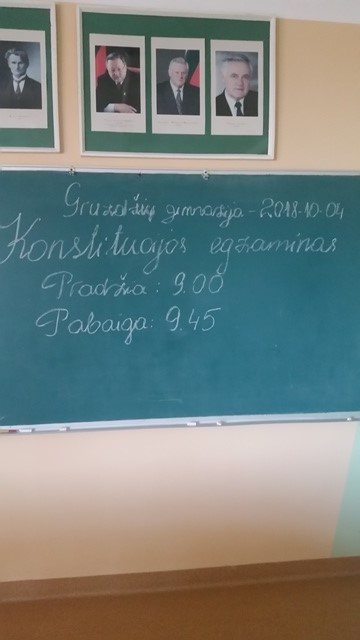 Gruzdžių gimnazija - 2018-10-04
Konstitucijos egzaminas
Pradžia: 9.00
Pabaiga: 9.45